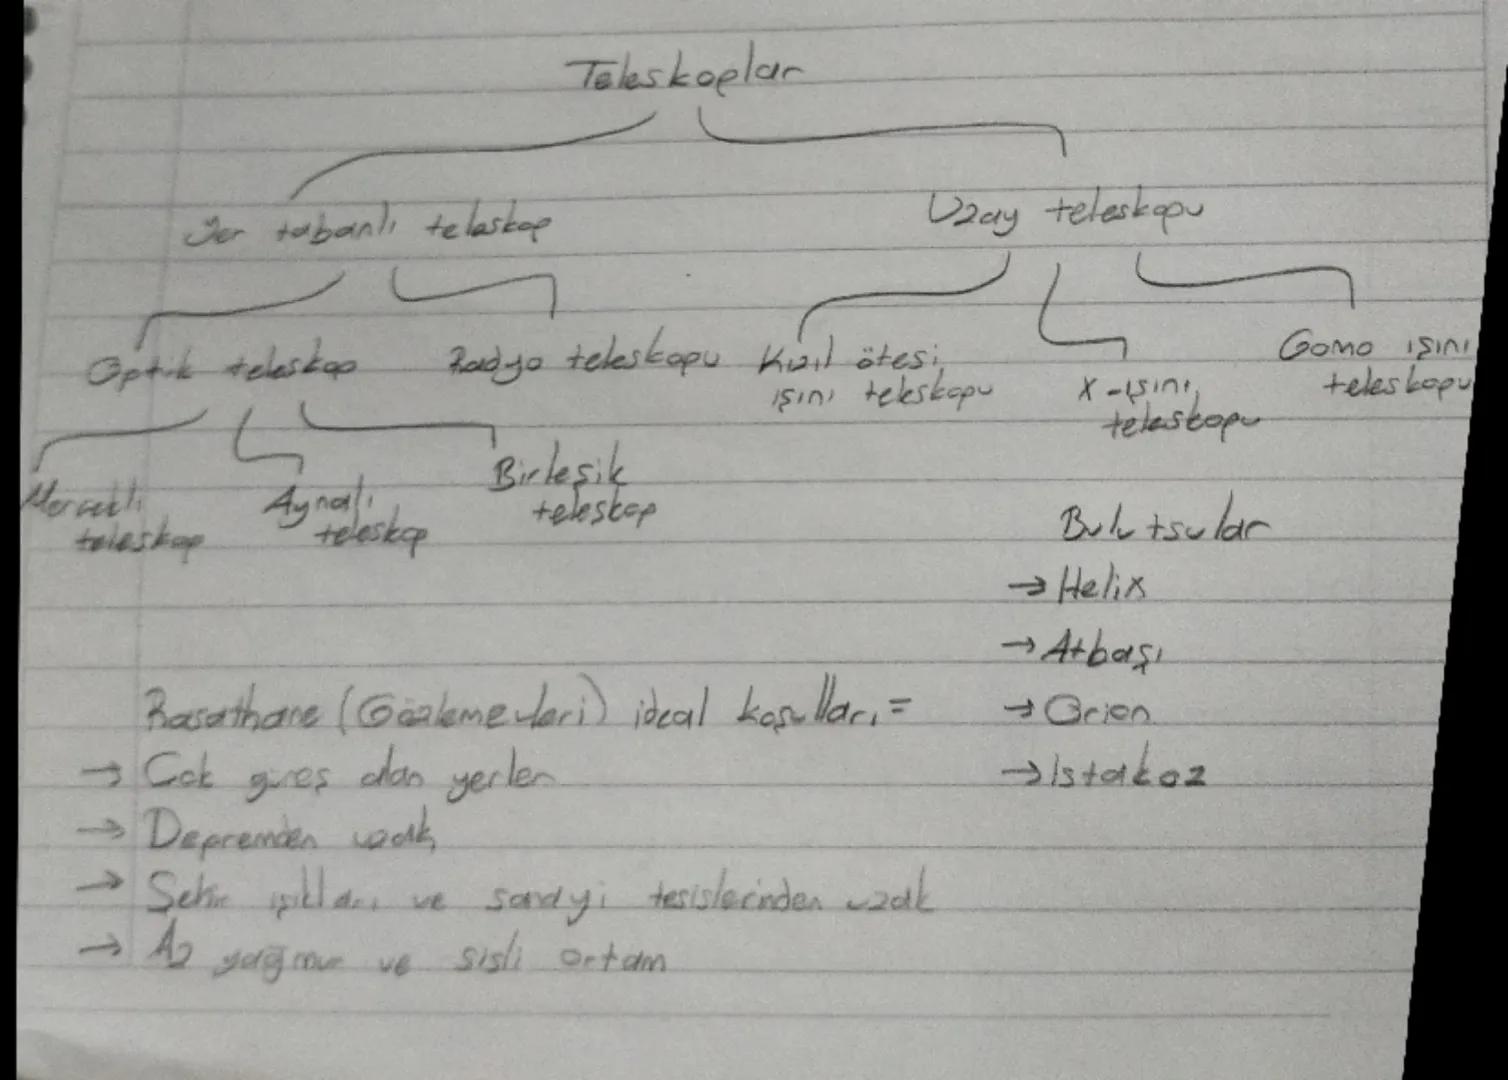 Teleskoplar
Yer tabanlı teleskop
Uzay teleskopu
Optik teleskop
Radyo teleskopu
Kızıl ötesi
ışını teleskopu
X-ışını
teleskopu
Gama ışını
teleskopu
Mercekli
teleskop
Aynalı
teleskop
Birleşik
teleskop
Bulutsular
→ Helix
→ Atbaşı
→ Orion
→ Istakoz
Rasathane (Gözlemevleri) ideal koşulları =
→ Çok güneş alan yerler
→ Depremden uzak
→ Şehir ışıkları ve sanayi tesislerinden uzak
→ Az yağmur ve sisli ortam